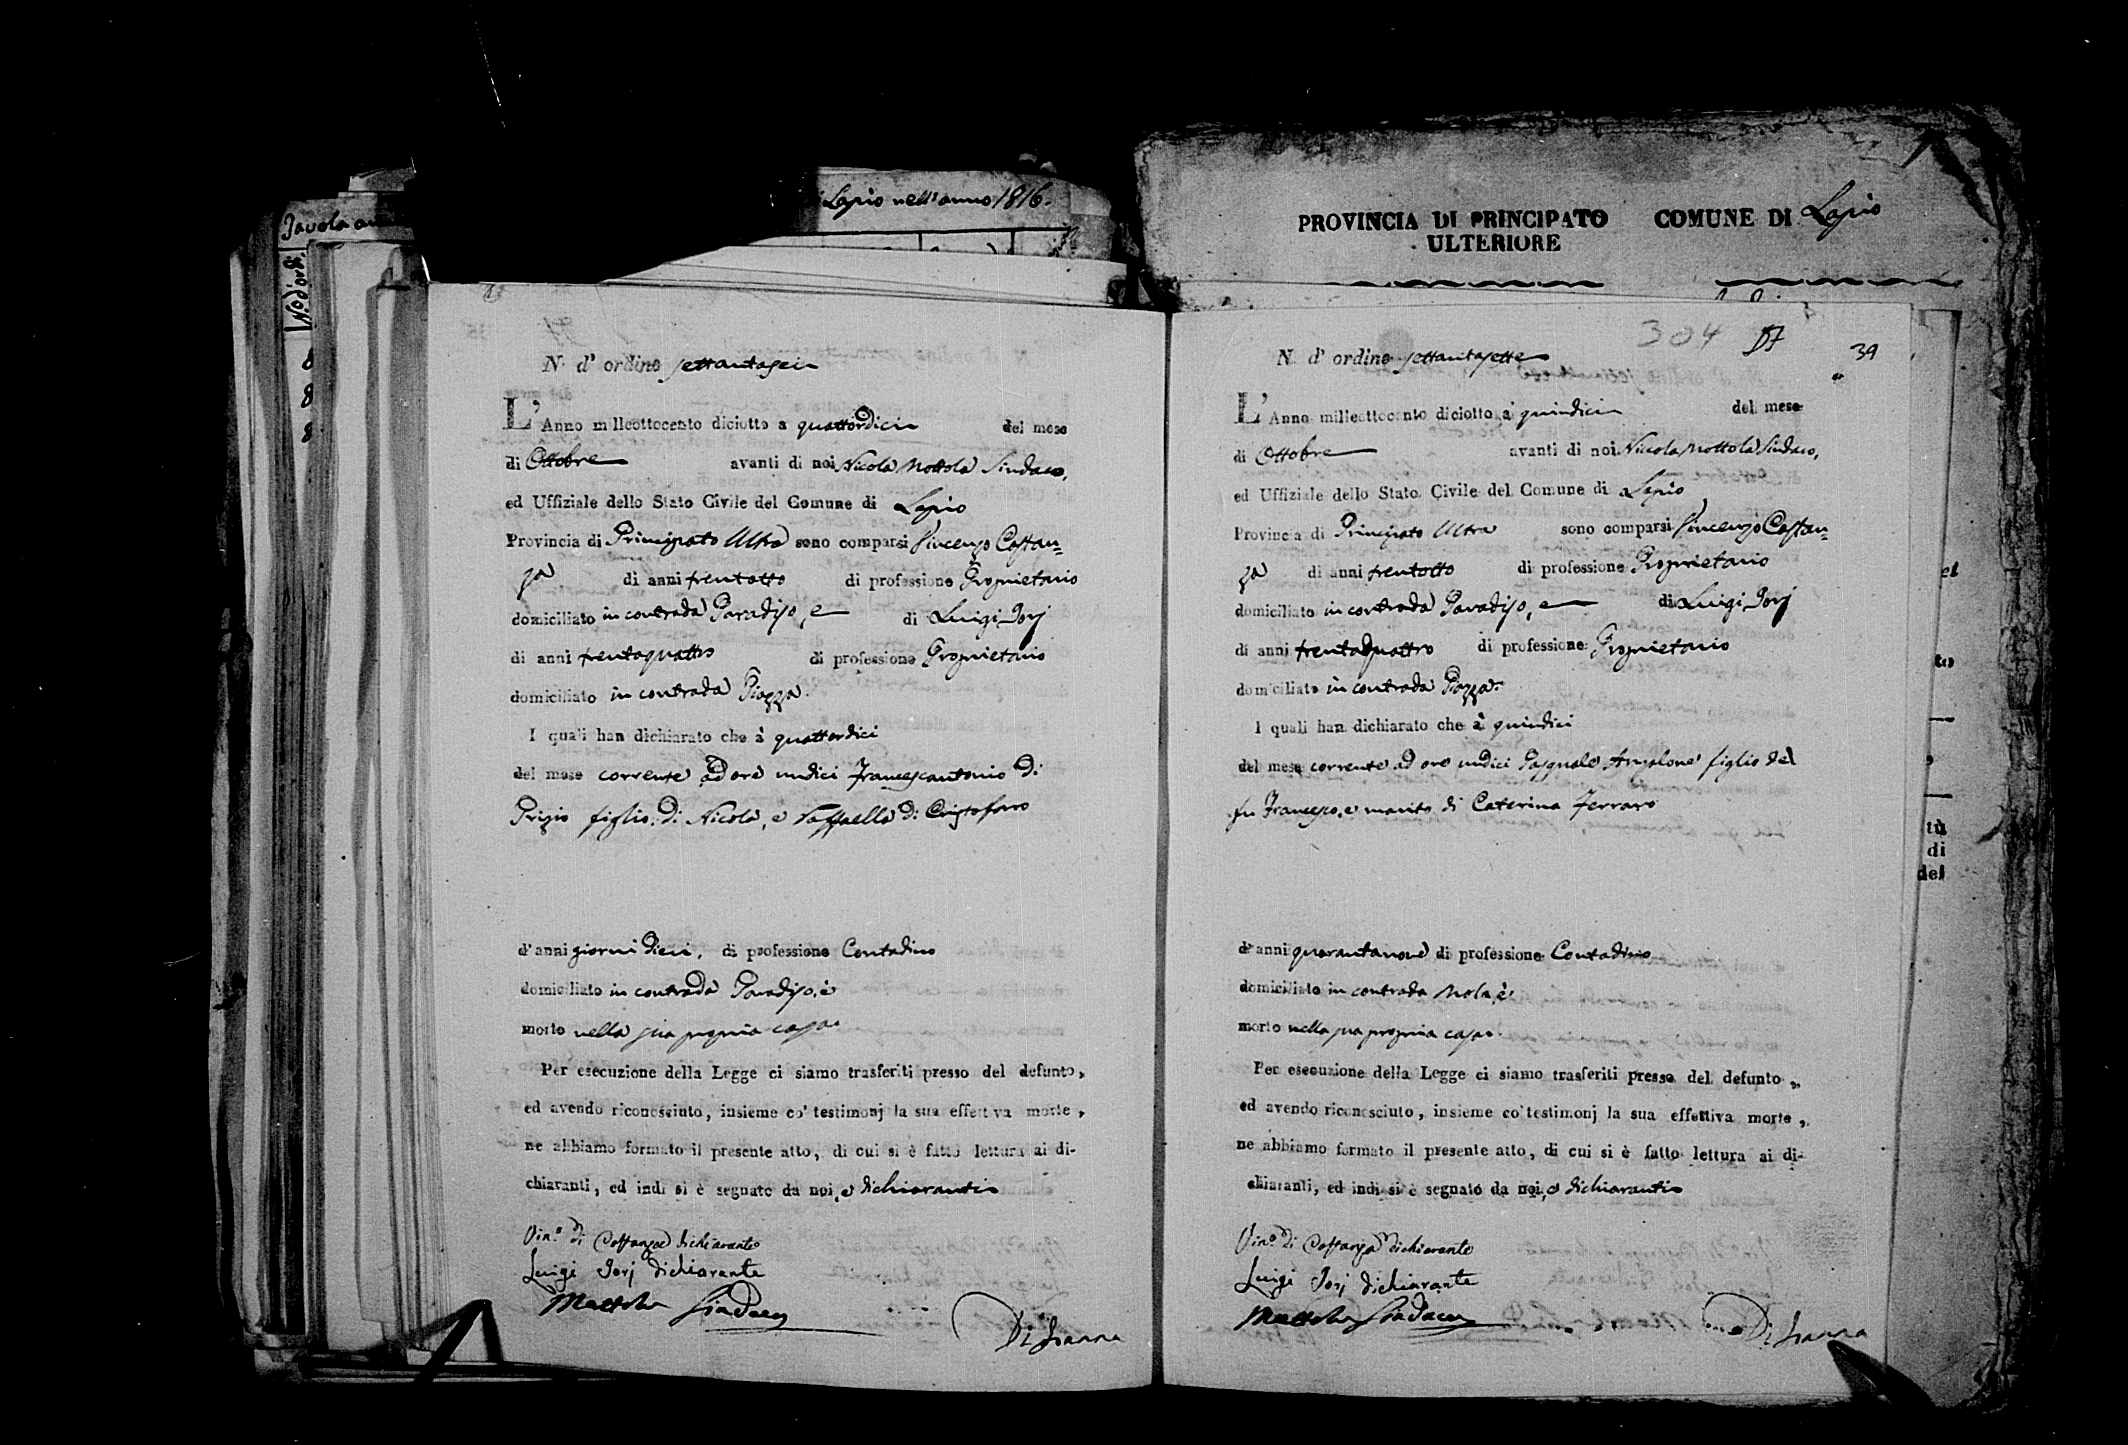 Lapio nell'anno 1816.
Tavola
N.º d'ordi.
PROVINCIA DI PRINCIPATO COMUNE DI Lapio
ULTERIORE
N. d' ordine settantasei
L'Anno milleottocento diciotto a quattordici del mese
di Ottobre avanti di noi Nicola Mottola Sindaco,
ed Uffiziale dello Stato Civile del Comune di Lapio
Provincia di Principato Ultra sono comparsi Vincenzo Costan=
za di anni trentotto di professione Proprietario
domiciliato in contrada Paradiso, e di Luigi Jorj
di anni trentaquattro di professione Proprietario
domiciliato in contrada Piazza.
I quali han dichiarato che à quattordici
del mese corrente ad ore undici Francescantonio Di
Prizio figlio di Nicola, e Raffaella di Cristofaro
d'anni giorni dieci. di professione Contadino
domiciliato in contrada Paradiso, è
morto nella sua propria casa
Per esecuzione della Legge ci siamo trasferiti presso del defunto,
ed avendo riconosciuto, insieme co' testimonj la sua effettiva morte,
ne abbiamo formato il presente atto, di cui si è fatto lettura ai di-
chiaranti, ed indi si è segnato da noi, e dichiaranti
Vin.º di Costanza dichiarante
Luigi Jorj dichiarante
Mottola Sindaco
304 39
N. d' ordine settantasette
L'Anno milleottocento diciotto a quindici del mese
di Ottobre avanti di noi Nicola Mottola Sindaco,
ed Uffiziale dello Stato Civile del Comune di Lapio
Provincia di Principato Ultra sono comparsi Vincenzo Costan=
za di anni trentotto di professione Proprietario
domiciliato in contrada Paradiso, e di Luigi Jorj
di anni trentaquattro di professione Proprietario
domiciliato in contrada Piazza.
I quali han dichiarato che à quindici
del mese corrente ad ore undici Pasquale figlio del
fu Francesco, e marito di Caterina Ferraro
d'anni quarantanove di professione Contadino
domiciliato in contrada Mola, è
morto nella sua propria casa.
Per esecuzione della Legge ci siamo trasferiti presso del defunto,
ed avendo riconosciuto, insieme co' testimonj la sua effettiva morte,
ne abbiamo formato il presente atto, di cui si è fatto lettura ai di-
chiaranti, ed indi si è segnato da noi, e dichiaranti
Vin.º di Costanza dichiarante
Luigi Jorj dichiarante
Mottola Sindaco